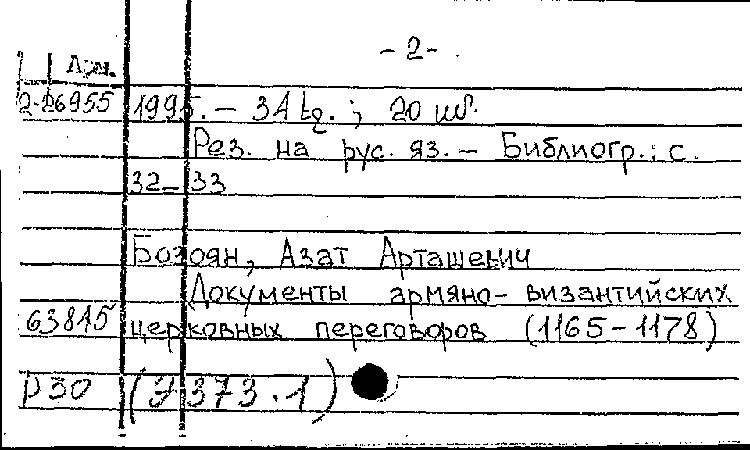 - 2 -
Арм.
2-26955 1995. – 34 էջ. ; 20 սմ.
Рез. на рус. яз. – Библиогр.: с.
32–33
Бозоян, Азат Арташевич
Документы армяно-византийских
63815 церковных переговоров (1165–1178)
Р30 (Э373.1)